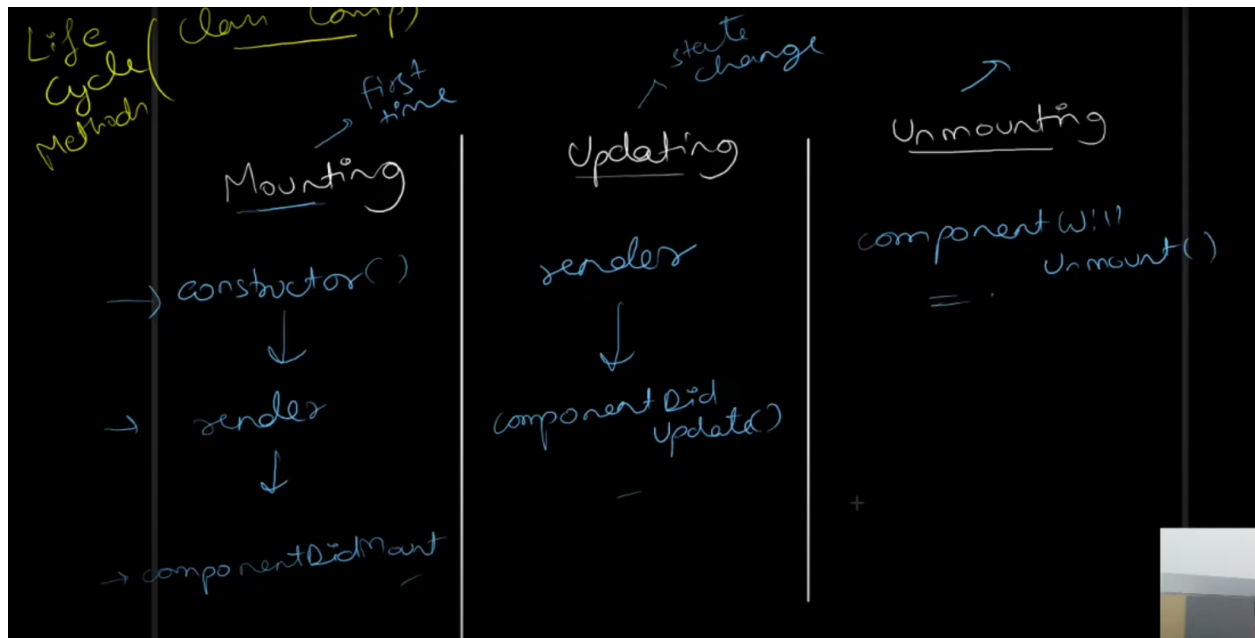 Life
Cycle (Class Comp)
Methods
first
time
Mounting
constructor()
render
componentDidMount
state
change
Updating
render
componentDid
Update()
Unmounting
componentWill
Unmount()